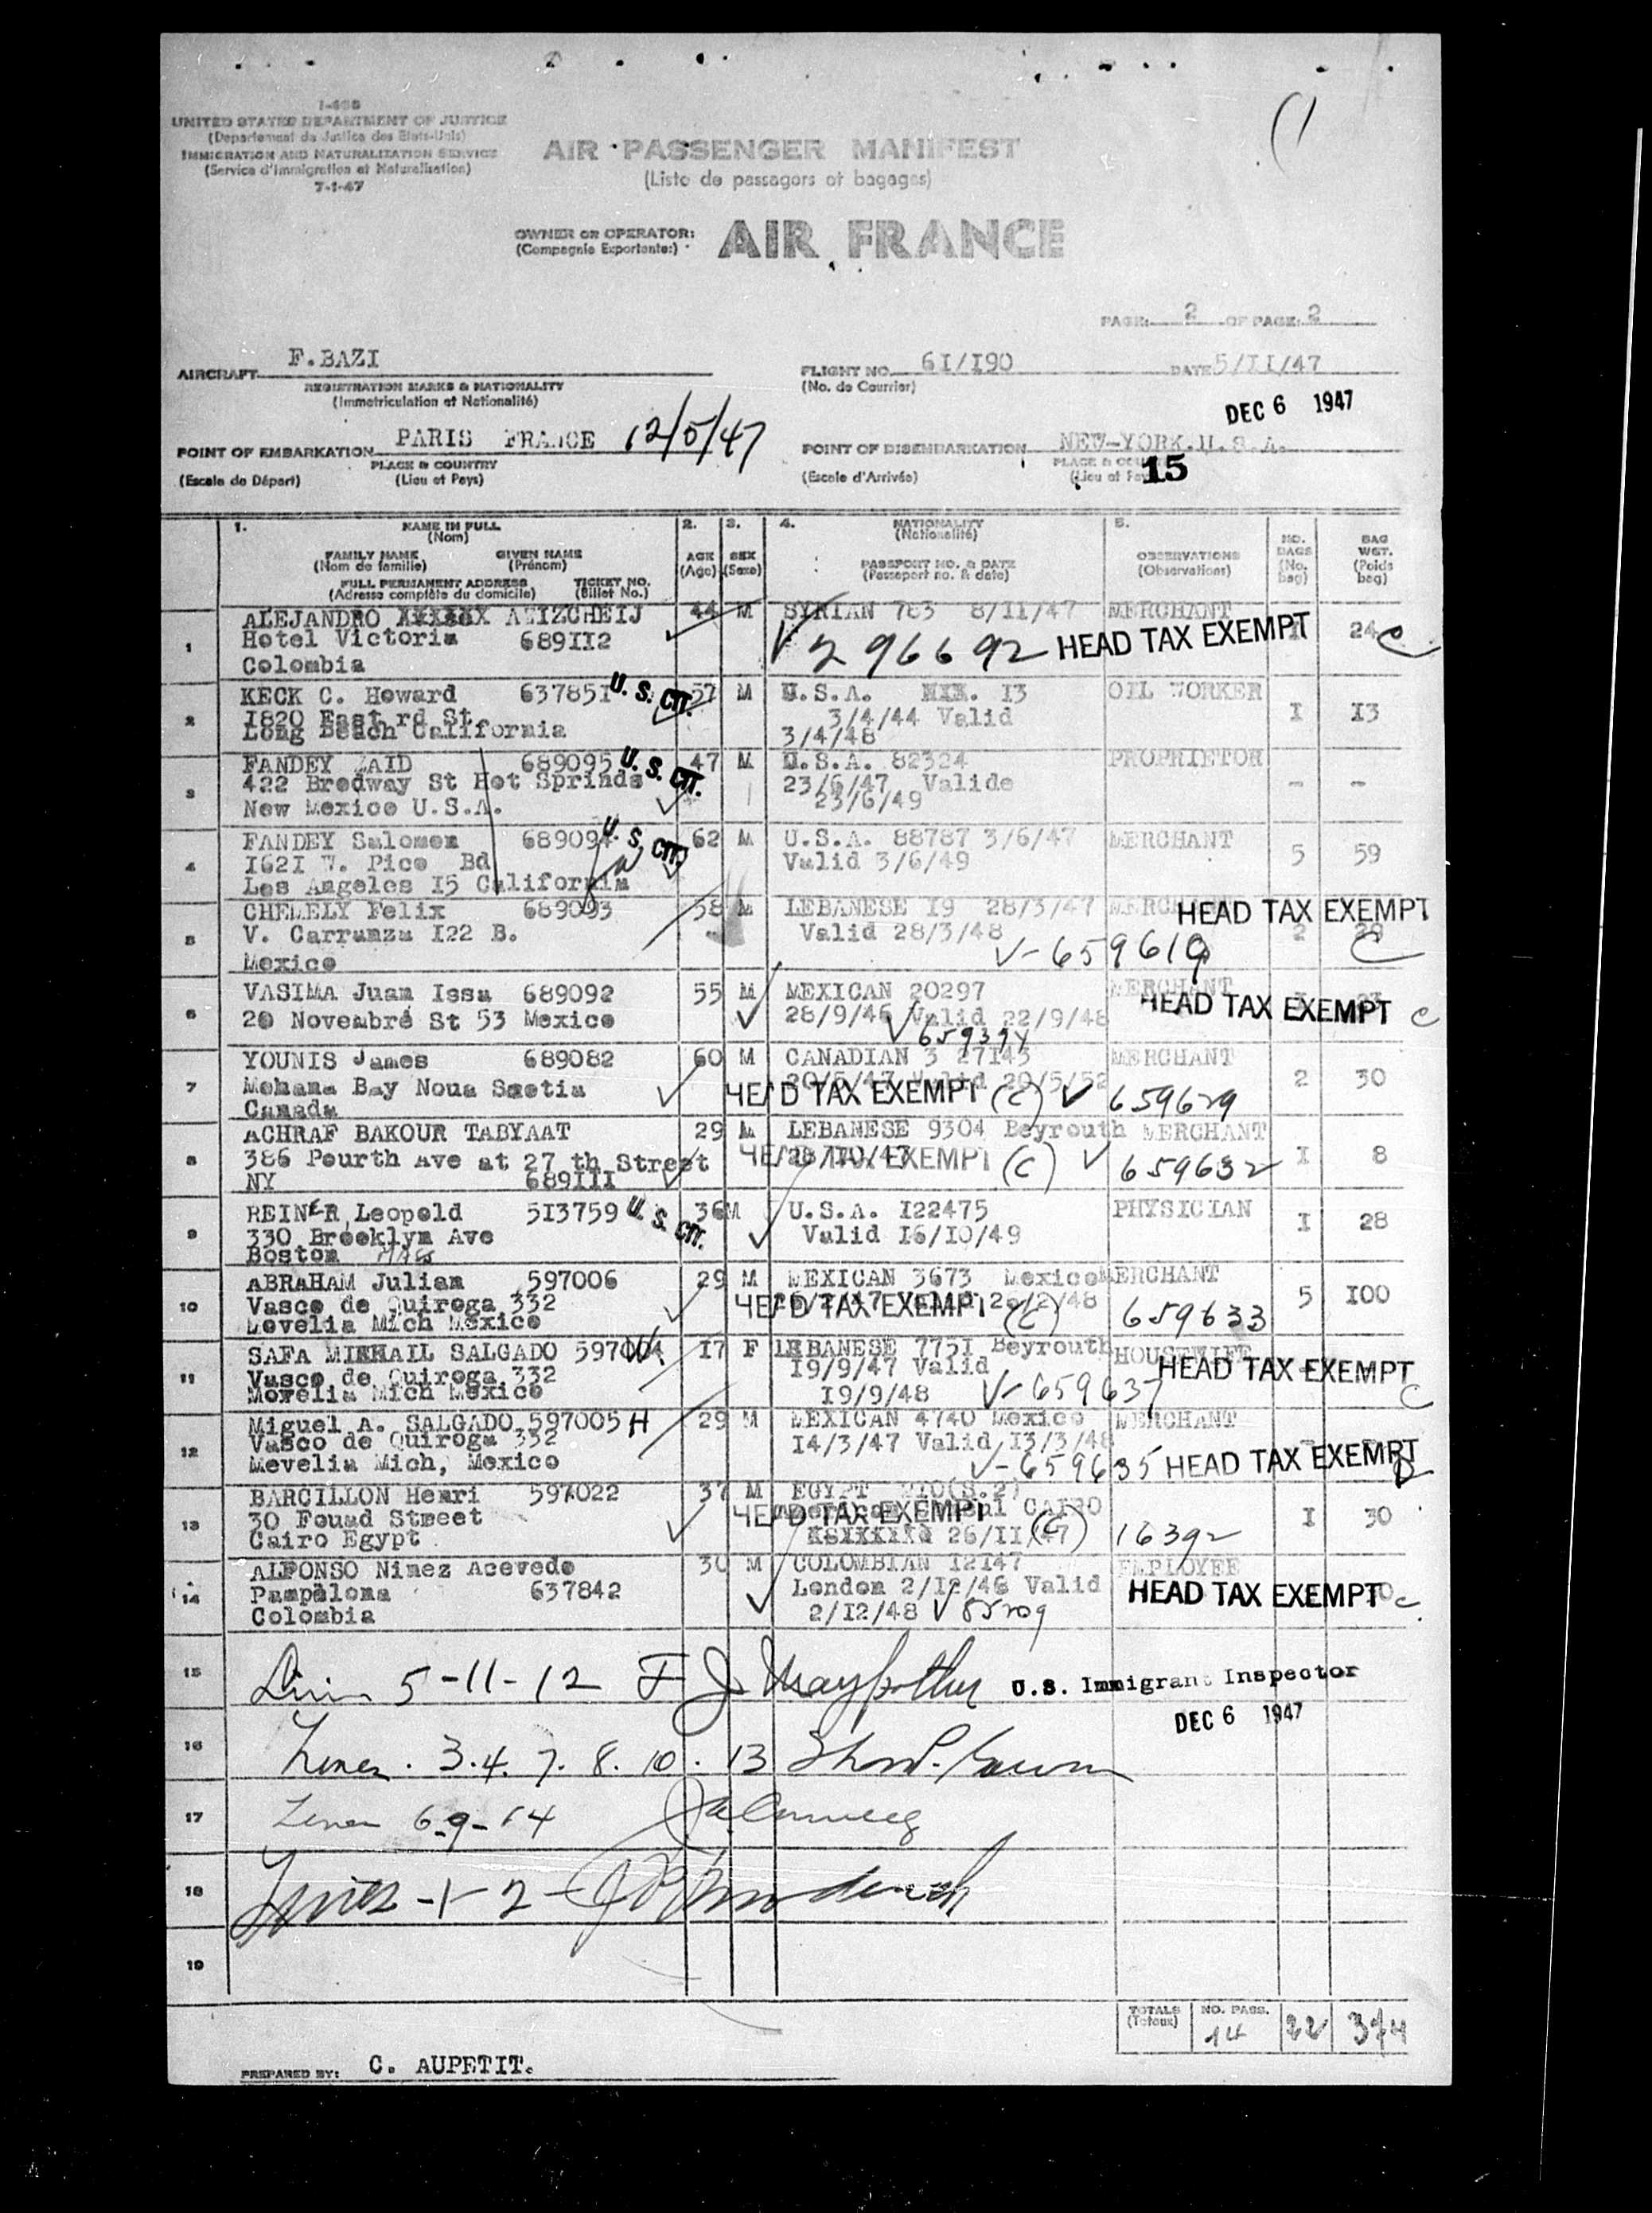 I-466
UNITED STATES DEPARTMENT OF JUSTICE
(Departement de Justice des Etats-Unis)
IMMIGRATION AND NATURALIZATION SERVICE
(Service d'Immigration et Naturalisation)
7-1-47
AIR PASSENGER MANIFEST
(Liste de passagers et bagages)
OWNER OR OPERATOR: AIR FRANCE
(Compagnie Exportante:)
PAGE: 2 OF PAGE: 2
AIRCRAFT F.BAZI
REGISTRATION MARKS & NATIONALITY
(Immatriculation et Nationalité)
FLIGHT NO. 6I/I90 DATE 5/II/47
(No. de Courrier)
DEC 6 1947
POINT OF EMBARKATION PARIS FRANCE 12/5/47
PLACE & COUNTRY
(Escale de Départ) (Lieu et Pays)
POINT OF DISEMBARKATION NEW-YORK.U.S.A.
PLACE & COU
(Escale d'Arrivée) (Lieu et Pay 15
1. NAME IN FULL 2. 3. 4. NATIONALITY 5.
(Nom) (Nationalité)
FAMILY NAME GIVEN NAME AGE SEX NO. BAGS BAG WGT.
(Nom de famille) (Prénom) (Age) (Sexe) PASSPORT NO. & DATE OBSERVATIONS (No. bag) (Poids bag)
(Passeport no. & date) (Observations)
FULL PERMANENT ADDRESS TICKET NO.
(Adresse complète du domicile) (Billet No.)
1 ALEJANDRO XXXXXX AZIZCHEIJ 44 M SYRIAN 783 8/II/47 MERCHANT
Hotel Victoria 689II2 V 296692 HEAD TAX EXEMPT 24 c
Colombia
2 KECK C. Howard 63785I U.S. CIT. 57 M U.S.A. 13 OIL WORKER
I820 East rd St. 3/4/44 Valid I I3
Long Beach California 3/4/48
3 FANDEY ZAID 689095 U.S. CIT. 47 M U.S.A. 82324 PROPRIETOR
422 Brodway St Hot Sprinds 23/6/47 Valide - -
New Mexico U.S.A. 23/6/49
4 FANDEY Salomon 689094 U.S. CIT. 62 M U.S.A. 88787 3/6/47 MERCHANT
I62I W. Pico Bd Valid 3/6/49 5 59
Los Angeles I5 California
5 CHELELY Felix 689093 58 M LEBANESE I9 28/3/47 HEAD TAX EXEMPT
V. Carranza I22 B. Valid 28/3/48 2
Mexico V-659619 C
6 VASIMA Juan Issa 689092 55 M MEXICAN 20297 MERCHANT
20 Novembré St 53 Mexico 28/9/46 Valid 22/9/48 HEAD TAX EXEMPT c
V 659394
7 YOUNIS James 689082 60 M CANADIAN 3 27I43 MERCHANT
Mohana Bay Noua Scotia 20/5/47 Valid 20/5/52 2 30
Canada HEAD TAX EXEMPT (C) V 659629
8 ACHRAF BAKOUR TABYAAT 29 M LEBANESE 9304 Beyrouth MERCHANT
386 Pourth Ave at 27 th Street HEAD TAX EXEMPT (C) V 659632 I 8
NY 689III
9 REINER Leopold 5I3759 U.S. CIT. 36 M U.S.A. I22475 PHYSICIAN
330 Brooklyn Ave Valid I6/I0/49 I 28
Boston Mass
10 ABRAHAM Julian 597006 29 M MEXICAN 3673 Mexico MERCHANT
Vasco de Quiroga 332 HEAD TAX EXEMPT (C) 659633 5 I00
Lovelia Mich Mexico
11 SAFA MIKHAIL SALGADO 597004 I7 F LEBANESE 775I Beyrouth HOUSEWIFE
Vasco de Quiroga 332 I9/9/47 Valid HEAD TAX EXEMPT
Morelia Mich Mexico I9/9/48 V-659637 C
12 Miguel A. SALGADO 597005 H 29 M MEXICAN 4740 Mexico MERCHANT
Vasco de Quiroga 332 I4/3/47 Valid I3/3/48
Mevelia Mich, Mexico V-659635 HEAD TAX EXEMPT
13 BARCILLON Henri 597022 37 M EGYPT 2I0(S.2)
30 Fouad Street HEAD TAX EXEMPT CAIRO I 30
Cairo Egypt 26/II/47 (C) 16392
14 ALFONSO Ninez Acevedo 30 M COLOMBIAN I2I47 EMPLOYEE
Pampèlona 637842 London 2/I2/46 Valid HEAD TAX EXEMPT c
Colombia 2/I2/48 V 85209
15 5-11-12 F J U.S. Immigrant Inspector
DEC 6 1947
16 Lines. 3.4. 7. 8. 10. 13
17 Lines 6-9-14
18 Lines -1-2-
19
TOTALS NO. PASS.
(Totaux) 14 22 374
PREPARED BY: C. AUPETIT.